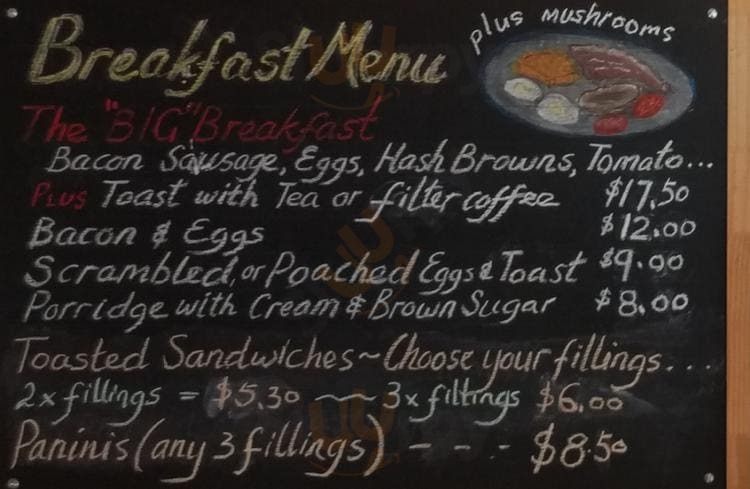 Breakfast Menu
plus mushrooms
The "BIG" Breakfast
Bacon Sausage, Eggs, Hash Browns, Tomato...
PLUS Toast with Tea or filter coffee $17.50
Bacon & Eggs $12.00
Scrambled, or Poached Eggs & Toast $9.00
Porridge with Cream & Brown Sugar $8.00
Toasted Sandwiches ~ Choose your fillings...
2x fillings = $5.30 ~~ 3x fillings $6.00
Paninis (any 3 fillings) - - - - $8.50